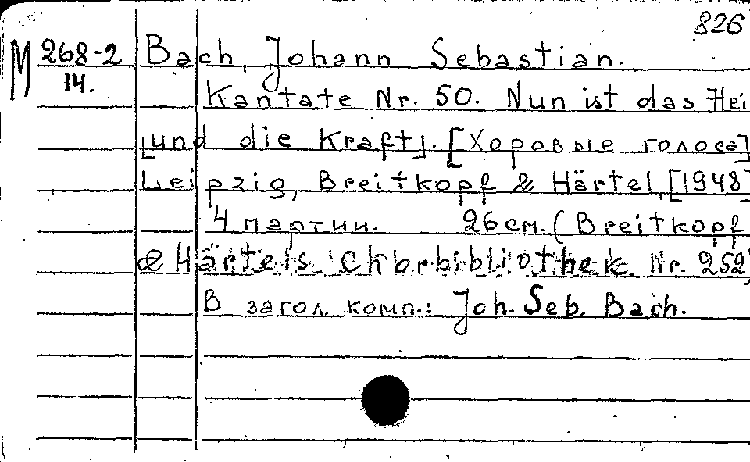 826
M 268-2 Bach, Johann Sebastian.
14.
Kantate Nr. 50. Nun ist das Hei
[und die Kraft]. [Хоровые голоса]
Leipzig, Breitkopf & Härtel, [1948]
4 партии. 26 см. (Breitkopf
& Härtels Chorbibliothek Nr. 252)
В загол. комп.: Joh. Seb. Bach.